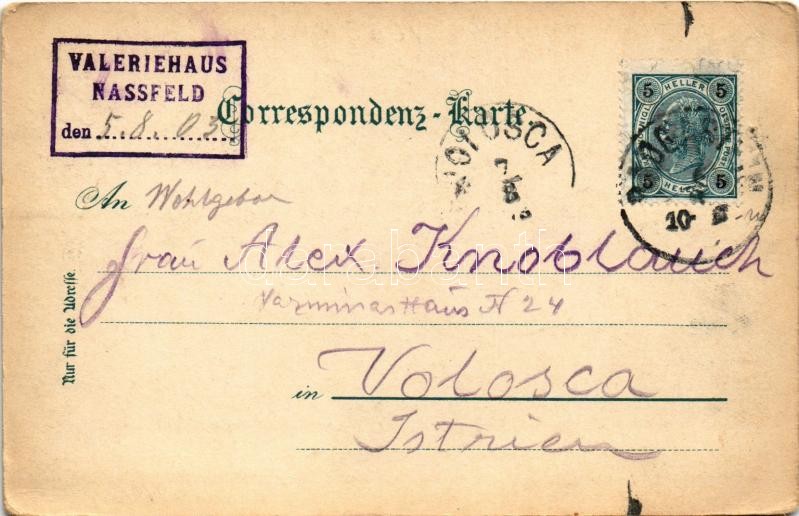 VALERIEHAUS
NASSFELD
den 5. 8. 03
Correspondenz-Karte.
5 HELLER 5
5 HELLER 5
VOLOSCA
10
An Wohlgebor
Frau Alex. Knoblauch
Haus N 24
in Volosca
Istrien
Nur für die Adresse.
darabanth